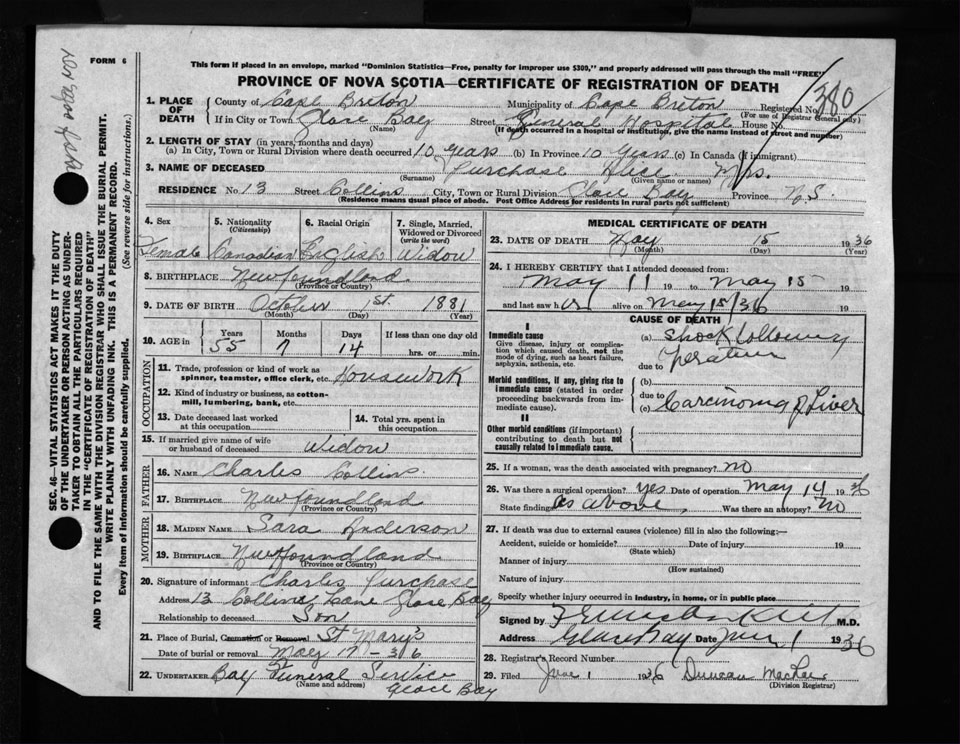 FORM 6
This form if placed in an envelope, marked "Dominion Statistics—Free, penalty for improper use $300," and properly addressed will pass through the mail "FREE"
PROVINCE OF NOVA SCOTIA—CERTIFICATE OF REGISTRATION OF DEATH
1. PLACE OF DEATH
County of Cape Breton Municipality of Cape Breton Registered No. 380
(For use of Registrar General only)
If in City or Town Glace Bay Street General Hospital House No.
(Name) (If death occurred in a hospital or institution, give the name instead of street and number)
2. LENGTH OF STAY (in years, months and days)
(a) In City, Town or Rural Division where death occurred 10 years (b) In Province 10 Years (c) In Canada (if immigrant)
3. NAME OF DECEASED Purchase Alice Mrs.
(Surname) (Given name or names)
RESIDENCE No 13 Street Collins City, Town or Rural Division Glace Bay Province N.S.
(Residence means usual place of abode. Post Office Address for residents in rural parts not sufficient)
4. Sex 5. Nationality (Citizenship) 6. Racial Origin 7. Single, Married, Widowed or Divorced (write the word)
Female Canadian English Widow
8. BIRTHPLACE Newfoundland
(Province or Country)
9. DATE OF BIRTH October 1st 1881
(Month) (Day) (Year)
10. AGE in Years Months Days If less than one day old
55 7 14 hrs. or min.
OCCUPATION
11. Trade, profession or kind of work as spinner, teamster, office clerk, etc. Housework
12. Kind of industry or business, as cotton-mill, lumbering, bank, etc.
13. Date deceased last worked at this occupation
14. Total yrs. spent in this occupation
15. If married give name of wife or husband of deceased Widow
FATHER
16. NAME Charles Collins
17. BIRTHPLACE Newfoundland
(Province or Country)
MOTHER
18. MAIDEN NAME Sara Anderson
19. BIRTHPLACE Newfoundland
(Province or Country)
20. Signature of informant Charles Purchase
Address 13 Collins Lane Glace Bay
Relationship to deceased Son
21. Place of Burial, Cremation or Removal St Mary's
Date of burial or removal May 17 - 36
22. UNDERTAKER Bay Funeral Service
(Name and address)
Glace Bay
MEDICAL CERTIFICATE OF DEATH
23. DATE OF DEATH May 15 1936
(Month) (Day) (Year)
24. I HEREBY CERTIFY that I attended deceased from:
May 11 19 to May 15 19
and last saw her alive on May 15/36 19
CAUSE OF DEATH
I
Immediate cause
Give disease, injury or complication which caused death, not the mode of dying, such as heart failure, asphyxia, asthenia, etc.
(a) Shock following
operation
due to
Morbid conditions, if any, giving rise to immediate cause (stated in order proceeding backwards from immediate cause).
(b)
due to
(c) Carcinoma of Liver
II
Other morbid conditions (if important) contributing to death but not causally related to immediate cause.
25. If a woman, was the death associated with pregnancy? no
26. Was there a surgical operation? yes Date of operation May 14 1936
State findings as above Was there an autopsy? no
27. If death was due to external causes (violence) fill in also the following:—
Accident, suicide or homicide? Date of injury 19
(State which)
Manner of injury
(How sustained)
Nature of injury
Specify whether injury occurred in industry, in home, or in public place
Signed by M.D.
Address Glace Bay Date June 1 1936
28. Registrar's Record Number
29. Filed June 1 1936 Duncan
(Division Registrar)
SEC. 46—VITAL STATISTICS ACT MAKES IT THE DUTY
OF THE UNDERTAKER OR PERSON ACTING AS UNDER-
TAKER TO OBTAIN ALL THE PARTICULARS REQUIRED
IN THE "CERTIFICATE OF REGISTRATION OF DEATH"
AND TO FILE THE SAME WITH THE DIVISION REGISTRAR WHO SHALL ISSUE THE BURIAL PERMIT.
WRITE PLAINLY WITH UNFADING INK. THIS IS A PERMANENT RECORD.
Every item of Information should be carefully supplied. (See reverse side for instructions.)